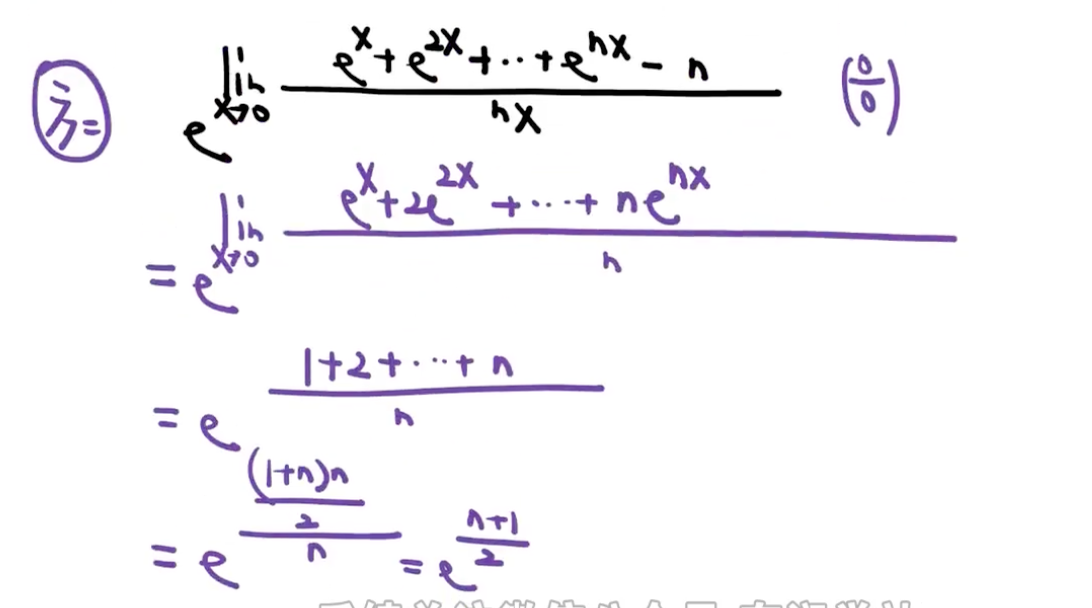 方二 e^{lim_{x→0} \frac{e^x+e^{2x}+⋯+e^{nx}-n}{nx}} (\frac{0}{0})
= e^{lim_{x→0} \frac{e^x+2e^{2x}+⋯+ne^{nx}}{n}}
= e^{\frac{1+2+⋯+n}{n}}
= e^{\frac{\frac{(1+n)n}{2}}{n}} = e^{\frac{n+1}{2}}